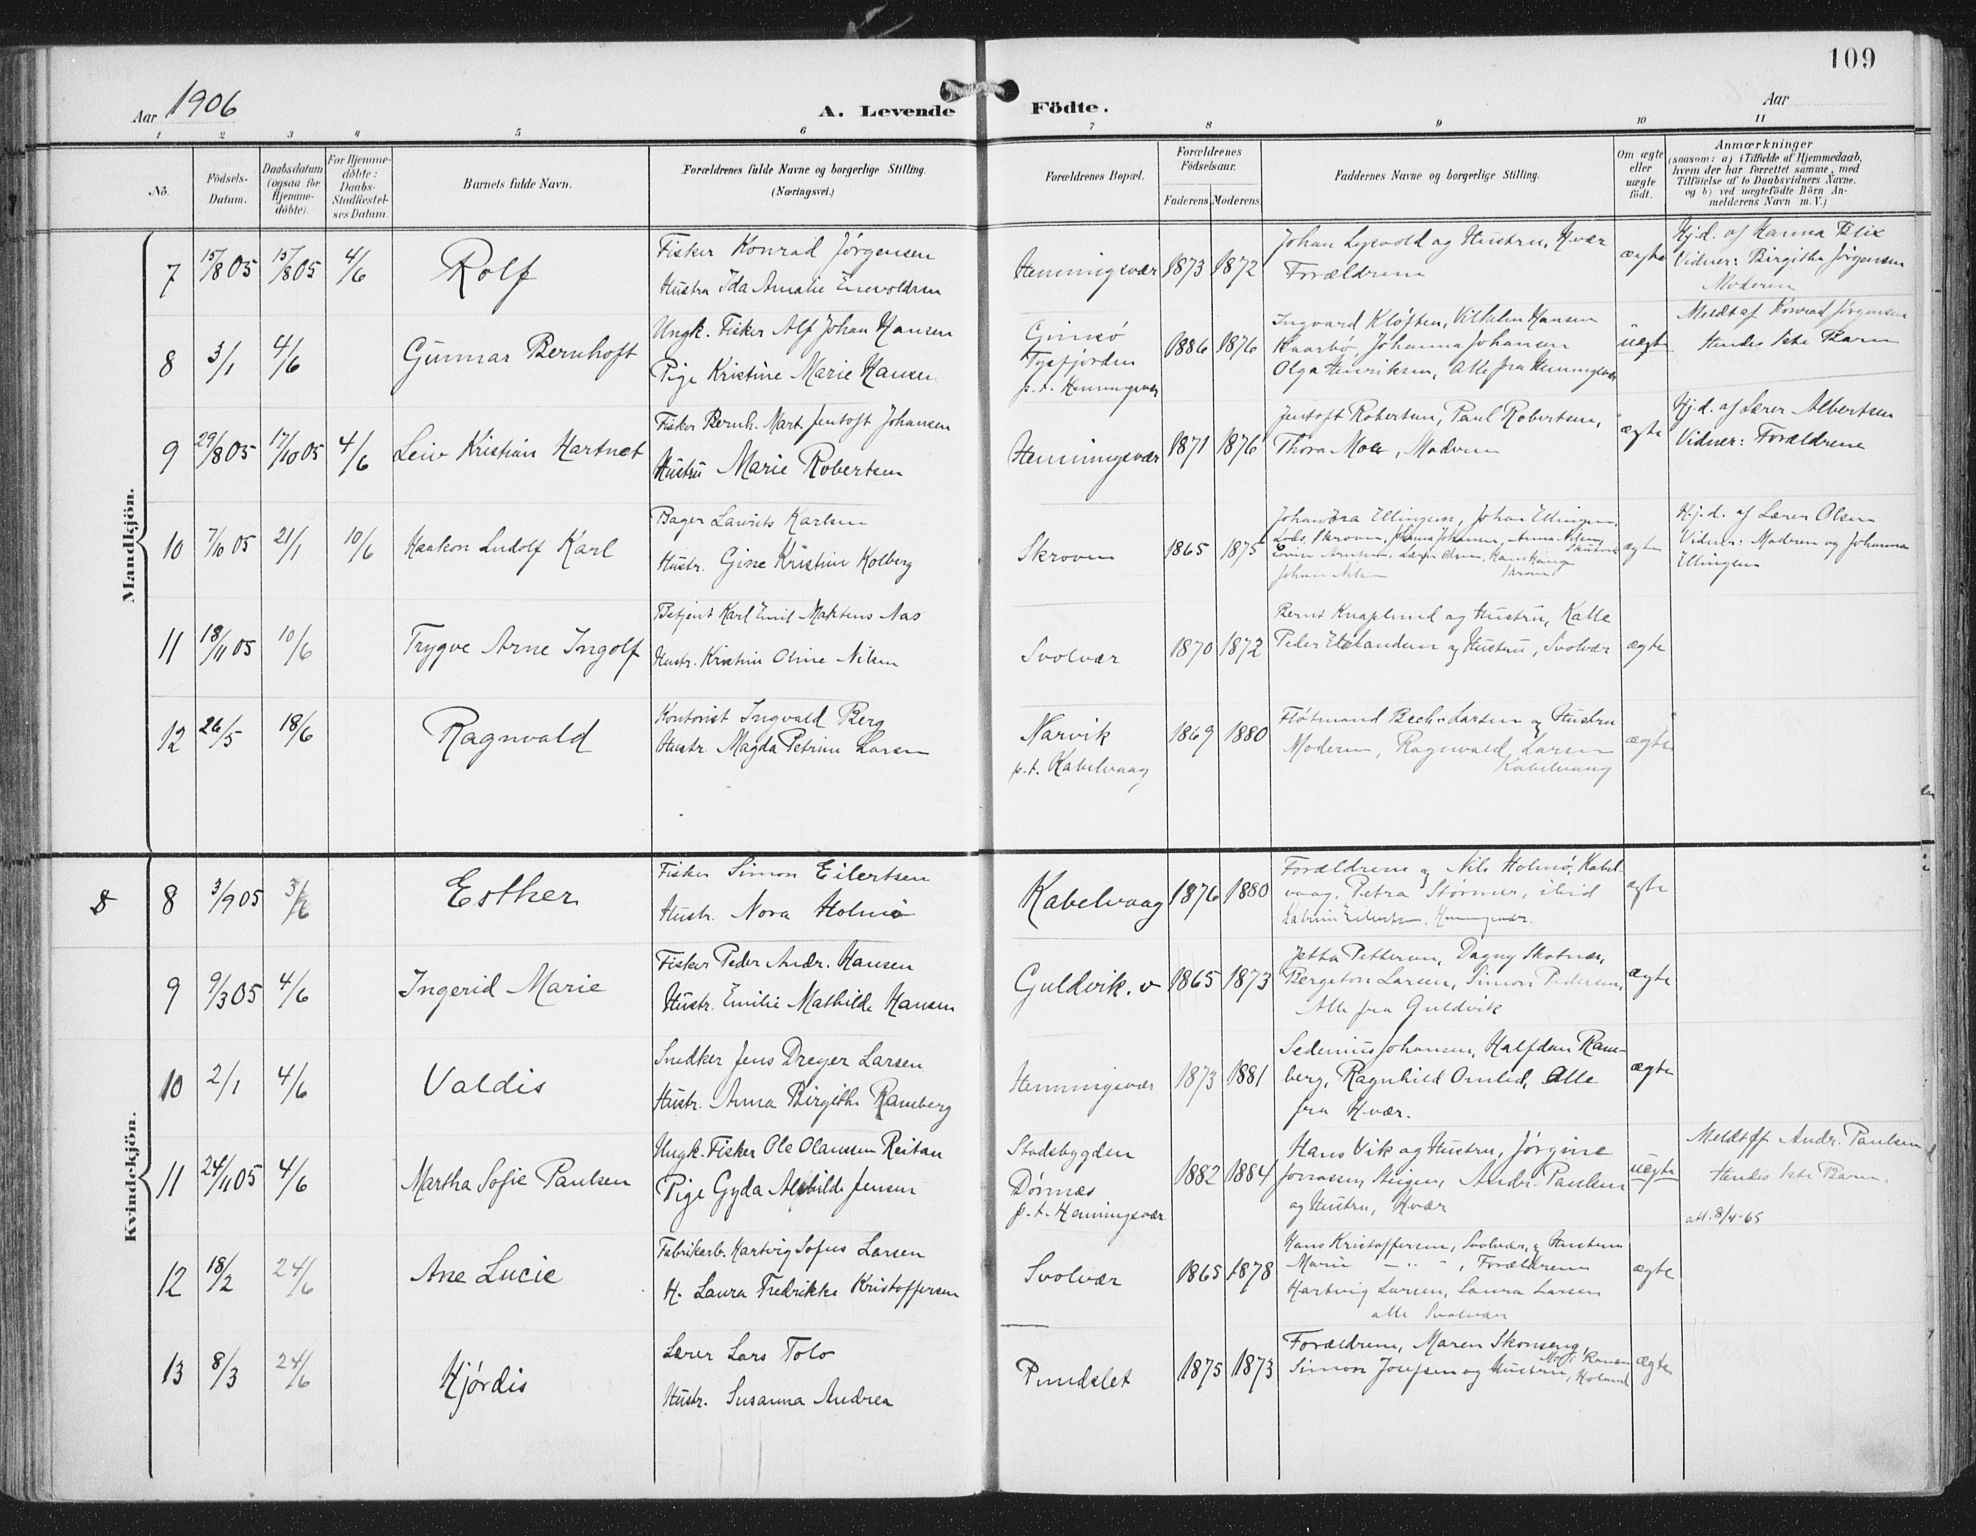 109
Aar 1906
A. Levende Födte.
Aar
1 2 3 4 5 6 7 8 9 10 11
No.
Födsels-Datum.
Daabsdatum (ogsaa for Hjemme-döbte).
For Hjemme-döbte: Daabs-Stadfæstel-ses Datum.
Barnets fulde Navn.
Forældrenes fulde Navne og borgerlige Stilling. (Næringsvei.)
Forældrenes Bopæl.
Forældrenes Födselsaar.
Faderens. Moderens.
Faddernes Navne og borgerlige Stilling.
Om ægte eller uægte födt.
Anmærkninger
(saasom: a) i Tilfælde af Hjemmedaab,
hvem der har forrettet samme, med
Tilföielse af to Daabsvidners Navne,
og b) ved uægtefödte Börn An-
melderens Navn m. V.)
Mandkjön.
7 15/8 05 15/8 05 4/6 Rolf
Fisker Konrad Jørgensen
Hustru Ida Amalie Enevoldsen
Henningsvær 1873 1872
Johan Lysvold og Hustru, H.vær
Forældrene
ægte
Hj.d. af Hanna Blix
Vidner: Birgitha Jørgensen
Moderen
8 3/1 4/6 Gunnar Bernhoft
Ungk. Fisker Alf Johan Hansen
Pige Kristine Marie Hansen
Gimsø
p.t. Henningsvær
1886 1876
Ingvard Kløften, Vilhelm Hansen
Kaarbø, Johanna Johansen
Olga Henriksen, Alle fra Henningsvær
uægte
Meldt af Konrad Jørgensen
Hendes 1ste Barn
9 29/8 05 17/10 05 4/6 Leiv Kristian Hartnet
Fisker Bernh. Mart. Jentoft Johansen
Hustru Marie Robertsen
Henningsvær 1871 1876
Jentoft Robertsen, Paul Robertsen,
Thora Moe, Moderen
ægte
Hj.d. af Lærer Albertsen
Vidner: Forældrene
10 7/10 05 21/1 10/6 Haakon Ludolf Karl
Bager Laurits Karlsen
Hustr. Gine Kristine Kolberg
Skroven 1865 1875
Ellingsen, Johan Ellingsen,
Lods, Skroven, Johanna Johansen, Anna Nilsen
Johan Nilsen
ægte
Hj.d. af Lærer Olsen
Vidner: Moderen og Johanna
Ellingsen
11 18/11 05 10/6 Trygve Arne Ingolf
Betjent Karl Emil Martens Aas
Hustr. Kristine Oline Nilsen
Svolvær 1870 1872
Bernt Knaplund og Hustru, Kalle
Peder og Hustru, Svolvær
ægte
12 26/5 18/6 Ragnvald
Kontorist Ingvald Berg
Hustr. Magda Petrine Larsen
Narvik
p.t. Kabelvaag
1869 1880
Fløtmand Bech-Larsen og Hustru
Moderen, Ragnvald Larsen
Kabelvaag
ægte
Kvindekjön.
8 8 3/9 05 3/6 Esther
Fisker Simon Eilertsen
Hustr. Nora Holmø
Kabelvaag 1876 1880
Forældrene og Nils Holmø, Kabel-
vaag, Petra Størmer, ibid
Henningsvær.
ægte
9 9/3 05 4/6 Ingerid Marie
Fisker Peder Andr. Hansen
Hustr. Emilie Mathilde Hansen
Guldvik. v 1865 1873
Jetta Pettersen, Dagny Skotnes,
Bergeton Larsen, Simon Pedersen,
Alle fra Guldvik
ægte
10 2/1 4/6 Valdis
Snedker Jens Dreyer Larsen
Hustr. Anna Birgithe Ramberg
Henningsvær 1873 1881
Sedenius Johansen, Halfdan Ram-
berg, Ragnhild Omlid, Alle
fra H.vær.
ægte
11 24/11 05 4/6 Martha Sofie Paulsen
Ungk. Fisker Ole Olaussen Reitan
Pige Gyda Alvhilde Jensen
Stadsbygden
Dønnæs
p.t. Henningsvær
1882 1884
Hans Vik og Hustru, Jørgine
Jonassen, Andr. Paulsen
og Hustru, H.vær
uægte
Meldt af Andr. Paulsen
Hendes 1ste Barn.
att. 8/4-65
12 18/2 24/6 Ane Lucie
Fabrikarb. Hartvig Sofus Larsen
H. Laura Fredrikke Kristoffersen
Svolvær 1865 1878
Hans Kristoffersen, Svolvær, og Hustru
Marie — " — , Forældrene
Hartvig Larsen, Laura Larsen
alle Svolvær
ægte
13 8/3 24/6 Hjørdis
Lærer Lars Tolo
Hustr. Susanna Andrea
Pundslet 1875 1873
Forældrene, Maren Skonseng,
Simon Josefsen og Hustru,
ægte